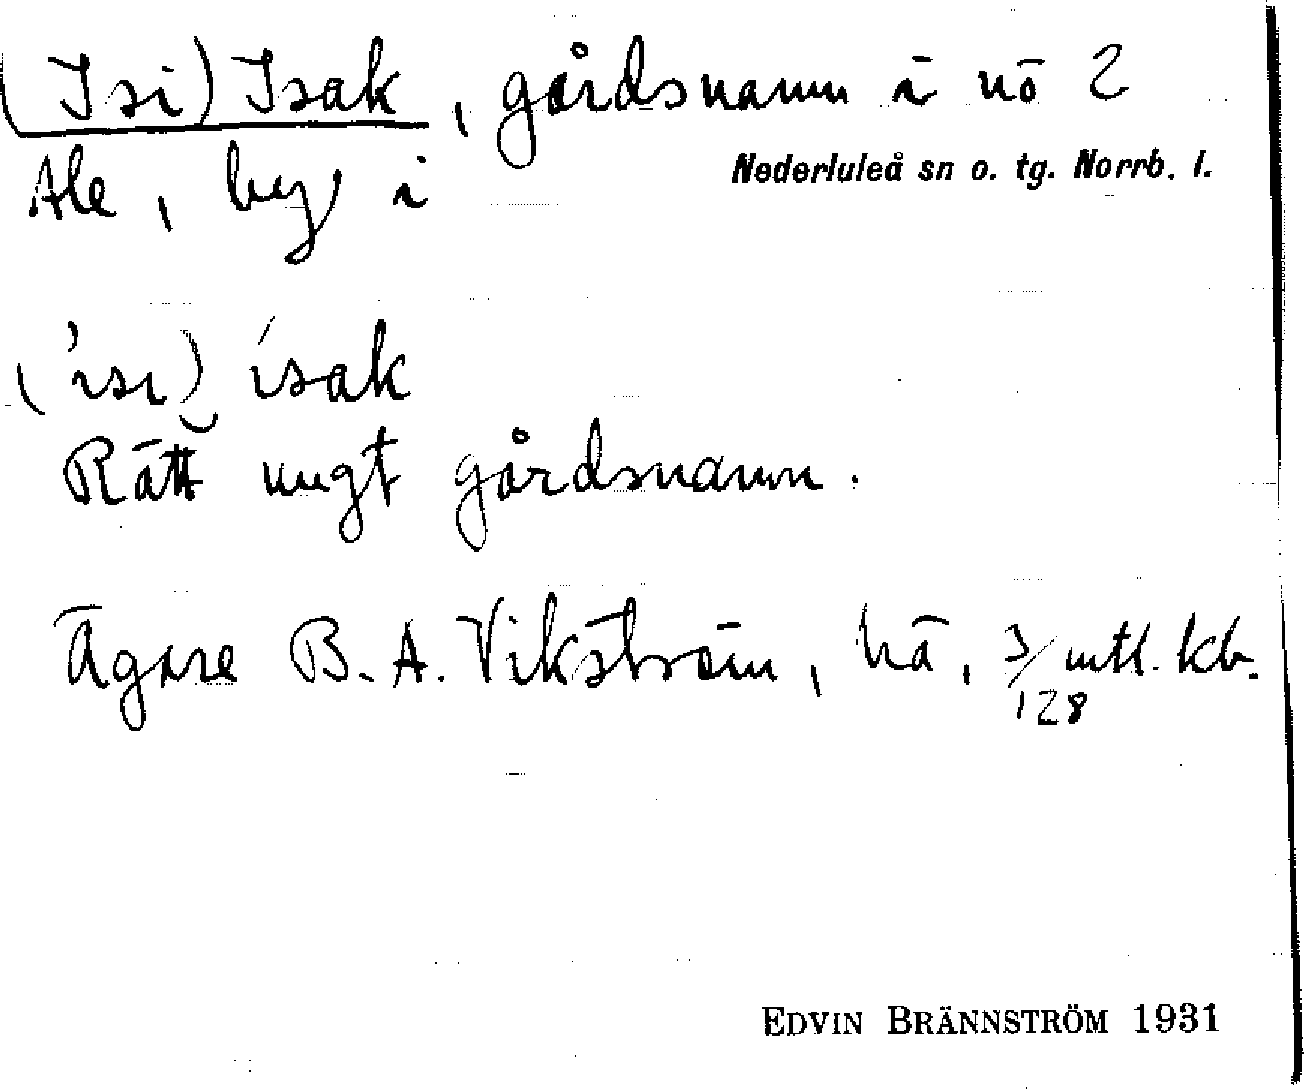 (Isi) Isak, gårdsnamn i nö 2
Ale, by i
Nederluleå sn o. tg. Norrb. l.
('isi) ísak
Rätt ungt gårdsnamn.
Ägare B. A. Vikström, hä, 3/128 mtl. kb.
EDVIN BRÄNNSTRÖM 1931